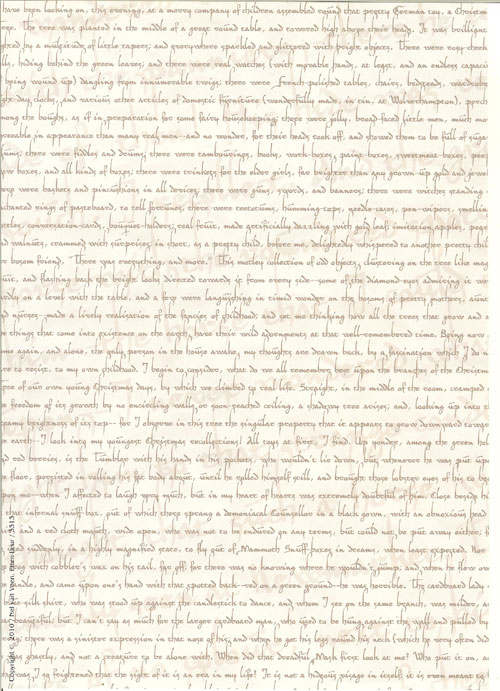 have been looking on, this evening, at a merry company of children assembled round that pretty German toy, a Christm
ree. The tree was planted in the middle of a great round table, and towered high above their heads. It was brilliant
ghted by a multitude of little tapers; and everywhere sparkled and glittered with bright objects. There were rosy-cheek
lls, hiding behind the green leaves; and there were real watches (with movable hands, at least, and an endless capacit
being wound up) dangling from innumerable twigs; there were French-polished tables, chairs, bedsteads, wardrobes
ght-day clocks, and various other articles of domestic furniture (wonderfully made, in tin, at Wolverhampton), perch
mong the boughs, as if in preparation for some fairy housekeeping; there were jolly, broad-faced little men, much mo
reeable in appearance than many real men—and no wonder, for their heads took off, and showed them to be full of suga
lums; there were fiddles and drums; there were tambourines, books, work-boxes, paint-boxes, sweetmeat-boxes, peep
ow boxes, and all kinds of boxes; there were trinkets for the elder girls, far brighter than any grown-up gold and je
ere were baskets and pincushions in all devices; there were guns, swords, and banners; there were witches standing
chanted rings of pasteboard, to tell fortunes; there were teetotums, humming-tops, needle-cases, pen-wipers, smelling
ottles, conversation-cards, bouquet-holders; real fruit, made artificially dazzling with gold leaf; imitation apples, pears
nd walnuts, crammed with surprises; in short, as a pretty child, before me, delightedly whispered to another pretty chil
er bosom friend, "There was everything, and more." This motley collection of odd objects, clustering on the tree like mag
uit, and flashing back the bright looks directed towards it from every side—some of the diamond-eyes admiring it we
rdly on a level with the table, and a few were languishing in timid wonder on the bosoms of pretty mothers, aunt
nd nurses—made a lively realisation of the fancies of childhood; and set me thinking how all the trees that grow and a
e things that come into existence on the earth, have their wild adornments at that well-remembered time. Being now
ome again, and alone, the only person in the house awake, my thoughts are drawn back, by a fascination which I do n
re to resist, to my own childhood. I begin to consider, what do we all remember best upon the branches of the Christm
ree of our own young Christmas days, by which we climbed to real life. Straight, in the middle of the room, cramped
e freedom of its growth by no encircling walls or soon-reached ceiling, a shadowy tree arises; and, looking up into t
eamy brightness of its top—for I observe in this tree the singular property that it appears to grow downward towar
e earth—I look into my youngest Christmas recollections! All toys at first, I find. Up yonder, among the green hol
nd red berries, is the Tumbler with his hands in his pockets, who wouldn't lie down, but whenever he was put upo
e floor, persisted in rolling his fat body about, until he rolled himself still, and brought those lobster eyes of his to be
pon me—when I affected to laugh very much, but in my heart of hearts was extremely doubtful of him. Close beside hi
that infernal snuff-box, out of which there sprang a demoniacal Counsellor in a black gown, with an obnoxious head
and a red cloth mouth, wide open, who was not to be endured on any terms, but could not be put away either; f
ed suddenly, in a highly magnified state, to fly out of Mammoth Snuff-boxes in dreams, when least expected. Nor
og with cobbler's wax on his tail, far off; for there was no knowing where he wouldn't jump; and when he flew ov
andle, and came upon one's hand with that spotted back—red on a green ground—he was horrible. The cardboard lady
ue-silk skirt, who was stood up against the candlestick to dance, and whom I see on the same branch, was milder, a
beautiful; but I can't say as much for the larger cardboard man, who used to be hung against the wall and pulled by
ing; there was a sinister expression in that nose of his; and when he got his legs round his neck (which he very often did
was ghastly, and not a creature to be alone with. When did that dreadful Mask first look at me? Who put it on, a
y was I so frightened that the sight of it is an era in my life? It is not a hideous visage in itself; it is even meant to
Copyright © 2010